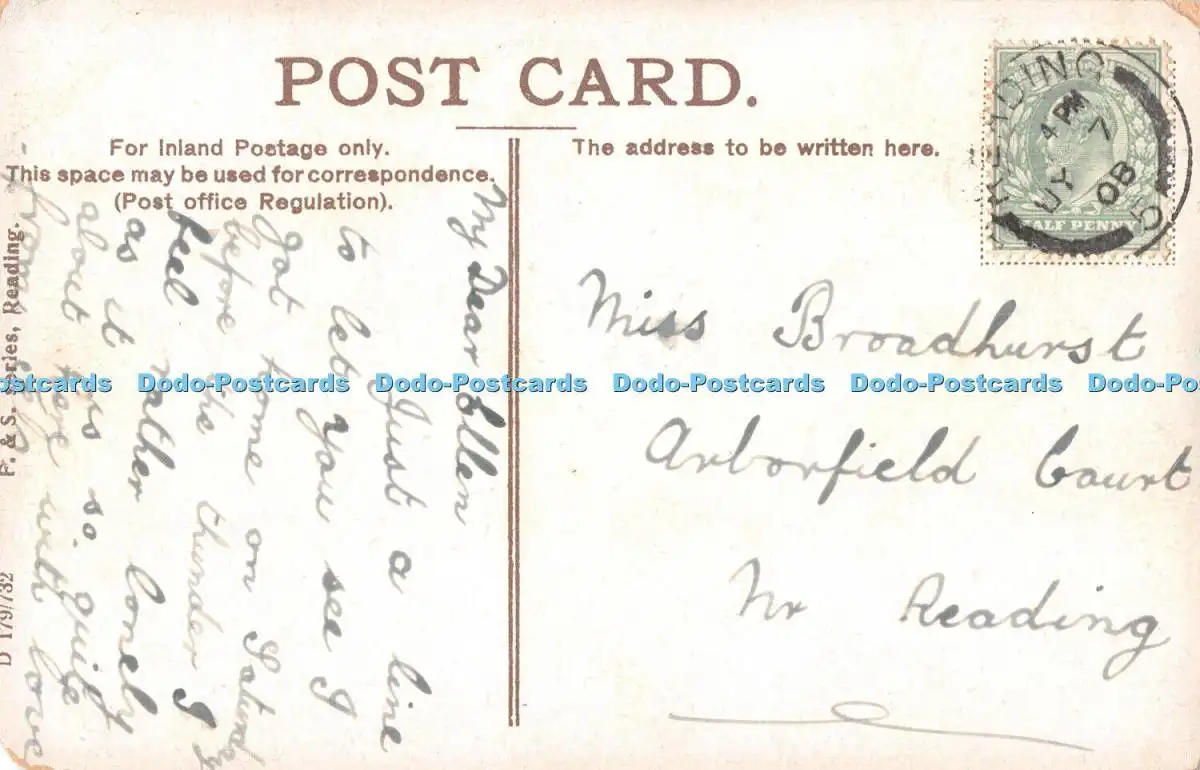 POST CARD.
For Inland Postage only.
This space may be used for correspondence.
(Post office Regulation).
The address to be written here.
READING
4 PM
JY 7
08
HALF PENNY
My Dear Ellen
Just a line
to let you see I
got home on Saturday
before the thunder I
feel rather lonely
as it is so quite
about here with love
from
Miss Broadhurst
Arborfield Court
Nr Reading
P. & S. Series, Reading.
D 179/732
Dodo-Postcards Dodo-Postcards Dodo-Postcards Dodo-Postcards Dodo-Postcards